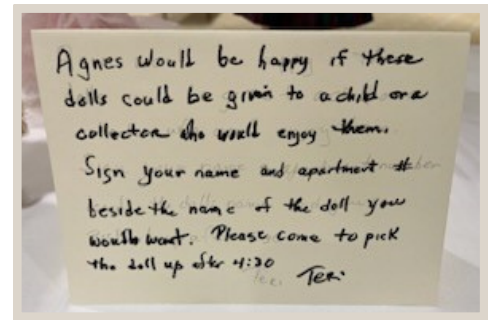 Agnes would be happy if these
dolls could be given to a child or a
collector who would enjoy them.
Sign your name and apartment #
beside the name of the doll you
would want. Please come to pick
the doll up after 4:30
Teri